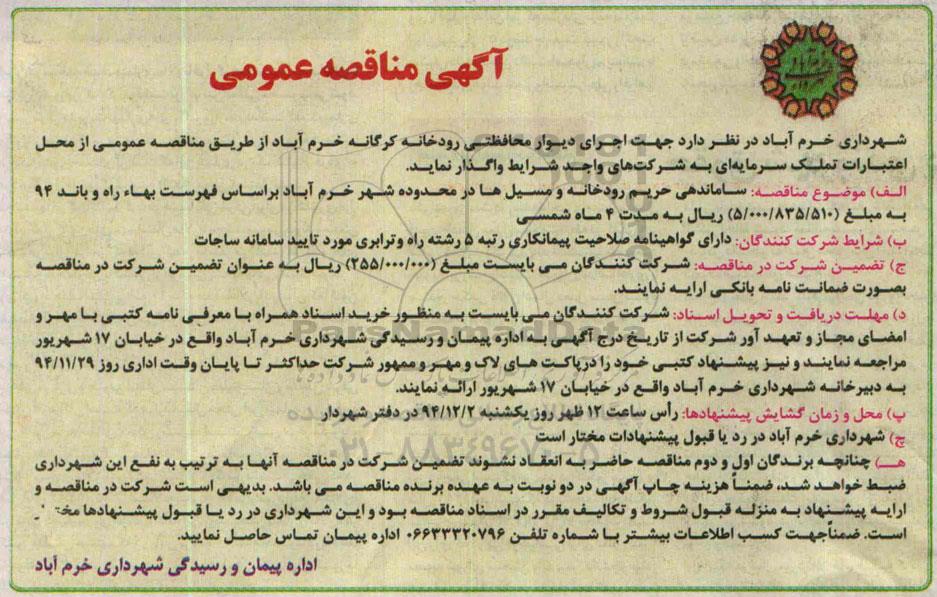 آگهی مناقصه عمومی
شهرداری خرم آباد در نظر دارد جهت اجرای دیوار محافظتی رودخانه کرگانه خرم آباد از طریق مناقصه عمومی از محل
اعتبارات تملک سرمایه‌ای به شرکت‌های واجد شرایط واگذار نماید.
الف) موضوع مناقصه: ساماندهی حریم رودخانه و مسیل ها در محدوده شهر خرم آباد براساس فهرست بهاء راه و باند ۹۴
به مبلغ (۵/۰۰۰/۸۳۵/۵۱۰) ریال به مدت ۴ ماه شمسی
ب) شرایط شرکت کنندگان: دارای گواهینامه صلاحیت پیمانکاری رتبه ۵ رشته راه وترابری مورد تایید سامانه ساجات
ج) تضمین شرکت در مناقصه: شرکت کنندگان می بایست مبلغ (۲۵۵/۰۰۰/۰۰۰) ریال به عنوان تضمین شرکت در مناقصه
بصورت ضمانت نامه بانکی ارایه نمایند.
د) مهلت دریافت و تحویل اسناد: شرکت کنندگان می بایست به منظور خرید اسناد همراه با معرفی نامه کتبی با مهر و
امضای مجاز و تعهد آور شرکت از تاریخ درج آگهی به اداره پیمان و رسیدگی شهرداری خرم آباد واقع در خیابان ۱۷ شهریور
مراجعه نمایند و نیز پیشنهاد کتبی خود را درپاکت های لاک و مهر و ممهور شرکت حداکثر تا پایان وقت اداری روز ۹۴/۱۱/۲۹
به دبیرخانه شهرداری خرم آباد واقع در خیابان ۱۷ شهریور ارائه نمایند.
پ) محل و زمان گشایش پیشنهادها: رأس ساعت ۱۲ ظهر روز یکشنبه ۹۴/۱۲/۲ در دفتر شهردار
چ) شهرداری خرم آباد در رد یا قبول پیشنهادات مختار است
هـ) چنانچه برندگان اول و دوم مناقصه حاضر به انعقاد نشوند تضمین شرکت در مناقصه آنها به ترتیب به نفع این شهرداری
ضبط خواهد شد، ضمناً هزینه چاپ آگهی در دو نوبت به عهده برنده مناقصه می باشد. بدیهی است شرکت در مناقصه و
ارایه پیشنهاد به منزله قبول شروط و تکالیف مقرر در اسناد مناقصه بود و این شهرداری در رد یا قبول پیشنهادها
است. ضمناًجهت کسب اطلاعات بیشتر با شماره تلفن ۰۶۶۳۳۳۲۰۷۹۶ اداره پیمان تماس حاصل نمایید.
اداره پیمان و رسیدگی شهرداری خرم آباد
ParsNamadData
۰۲۱-۸۸۳۴۹۶۷۰-۵